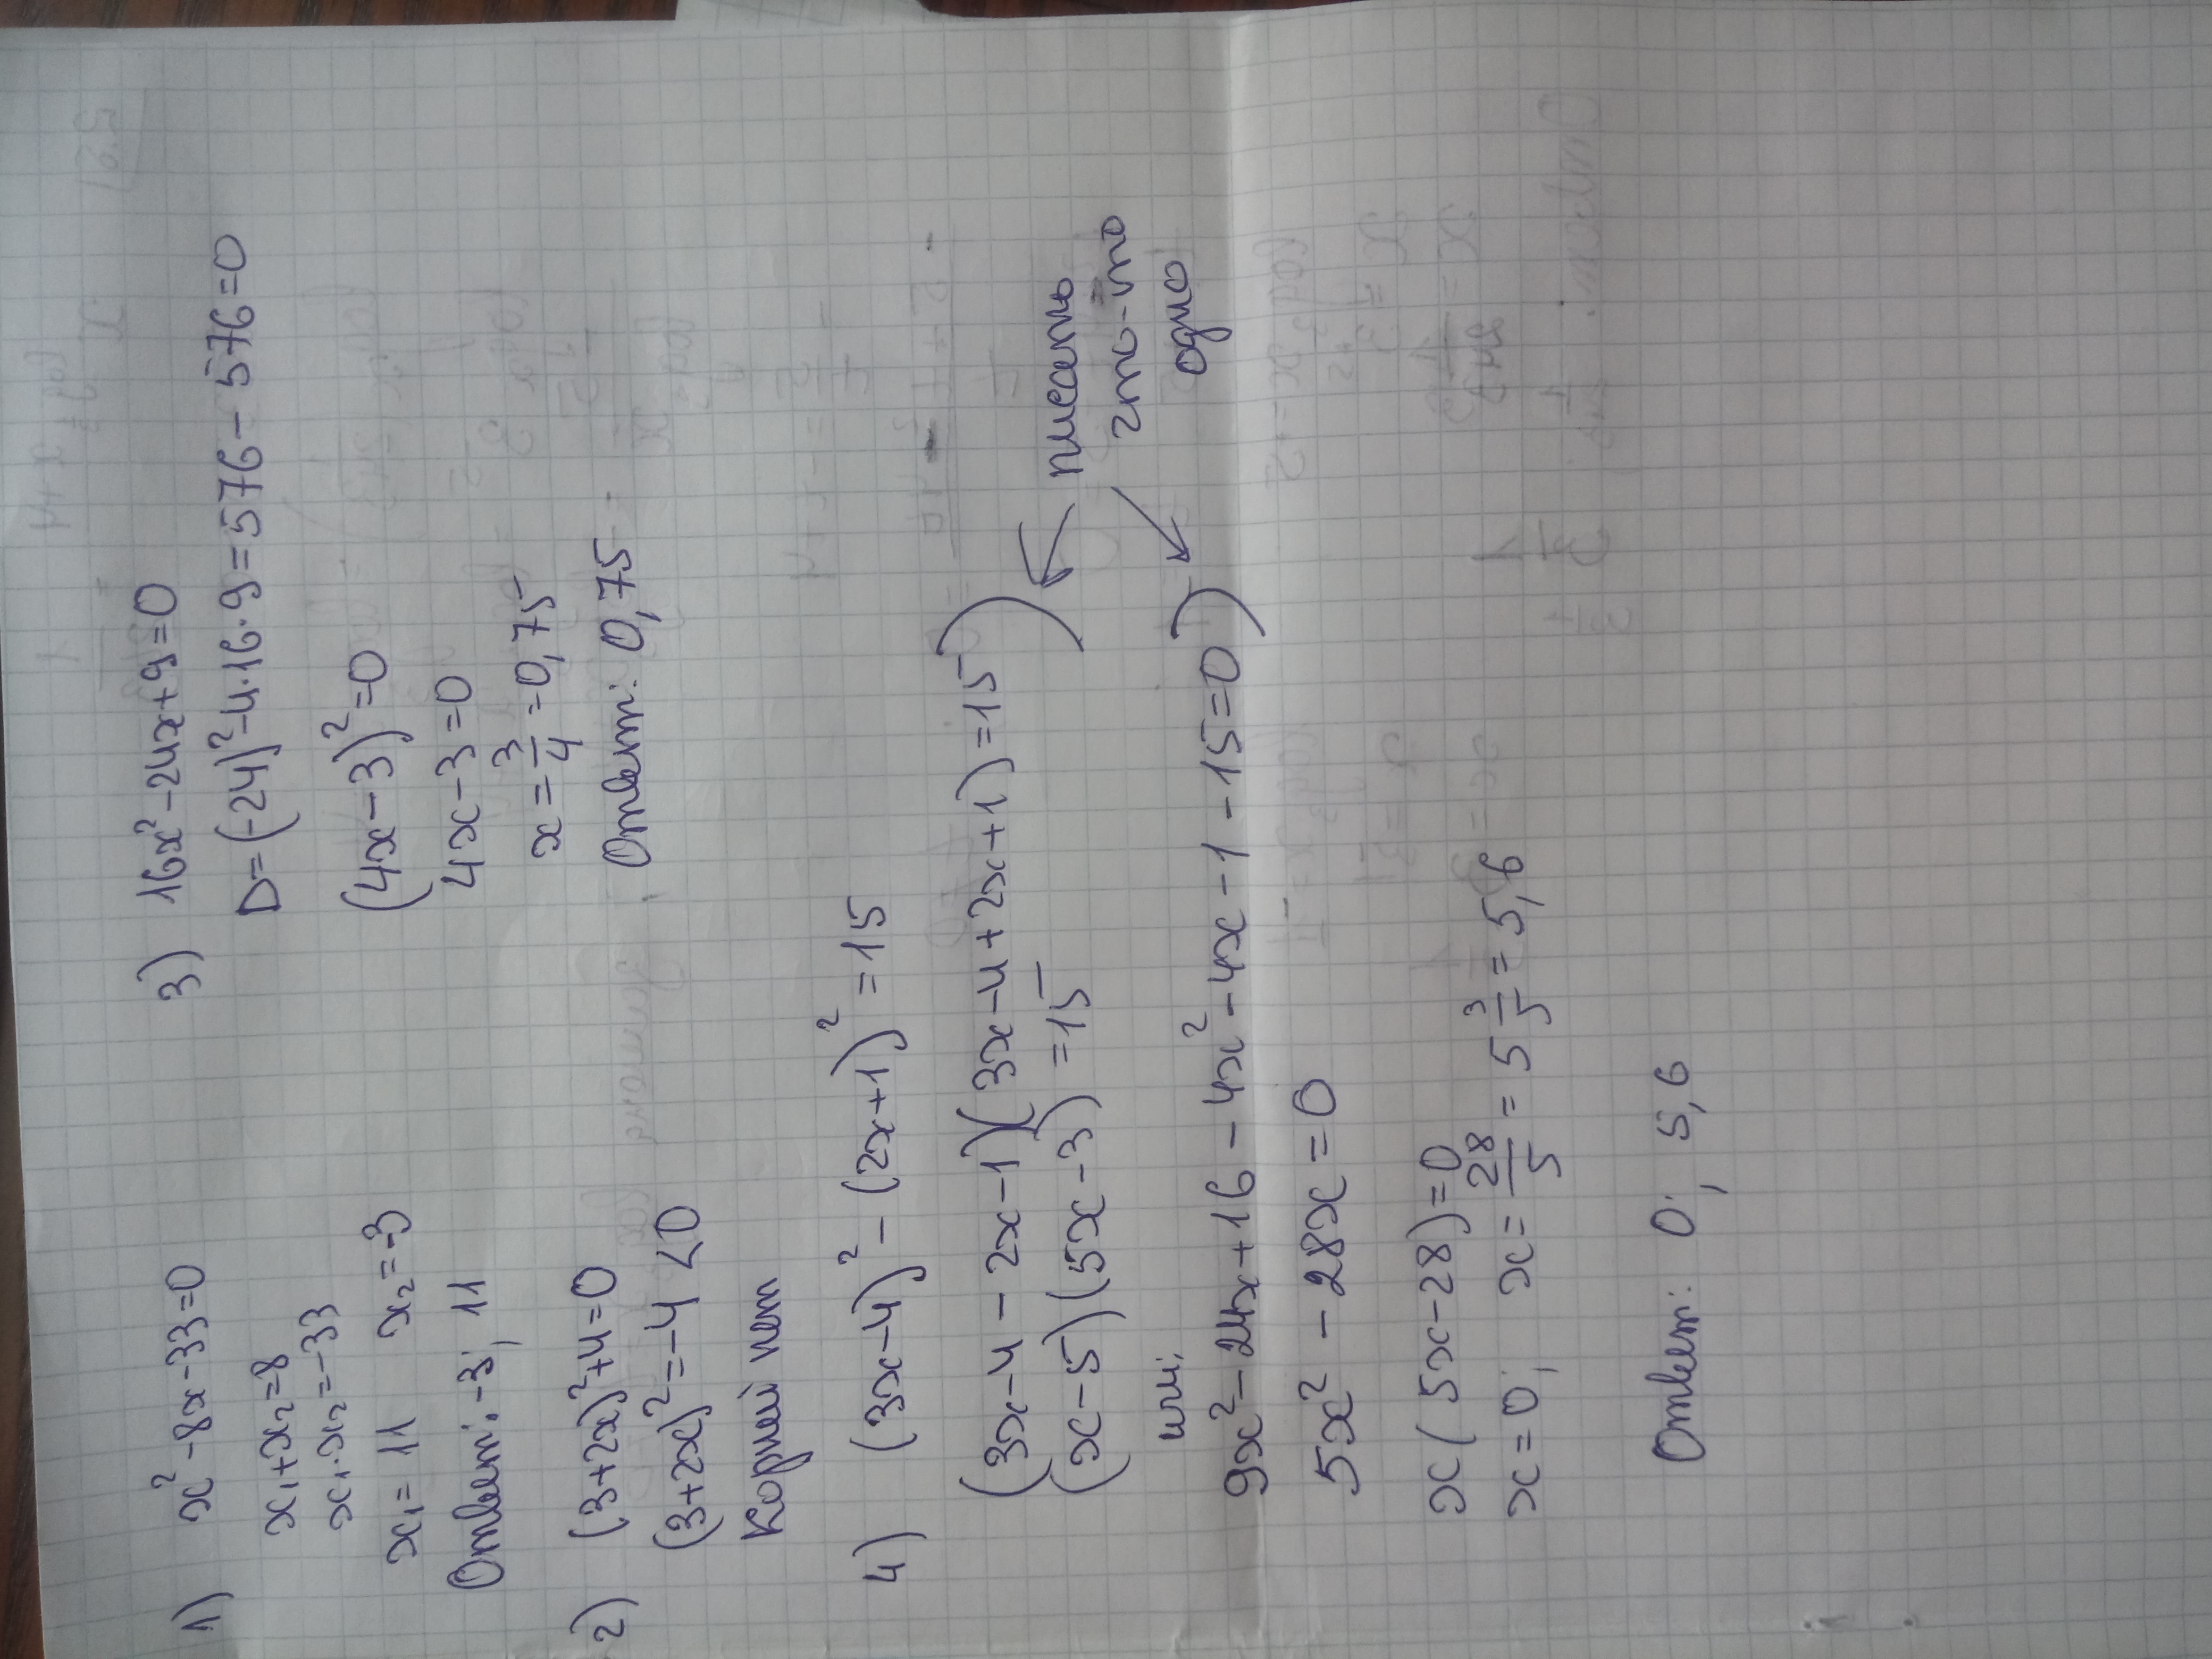 1) x² - 8x - 33 = 0
x₁ + x₂ = 8
x₁ · x₂ = -33
x₁ = 11 x₂ = -3
Ответ: -3; 11
2) (3 + 2x)² + 4 = 0
(3 + 2x)² = -4 < 0
Корней нет
3) 16x² - 24x + 9 = 0
D = (-24)² - 4 · 16 · 9 = 576 - 576 = 0
(4x - 3)² = 0
4x - 3 = 0
x = 3/4 = 0,75
Ответ: 0,75
4) (3x - 4)² - (2x + 1)² = 15
(3x - 4 - 2x - 1)(3x - 4 + 2x + 1) = 15
(x - 5)(5x - 3) = 15
или:
9x² - 24x + 16 - 4x² - 4x - 1 - 15 = 0
писать
что-то
одно
5x² - 28x = 0
x(5x - 28) = 0
x = 0; x = 28/5 = 5 3/5 = 5,6
Ответ: 0; 5,6